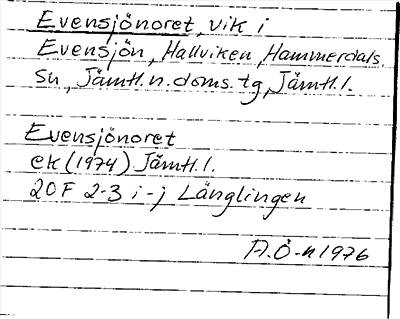 Evensjönoret, vik i
Evensjön, Hallviken, Hammerdals
sn, Jämtl. n. doms. tg, Jämtl. l.
Evensjönoret
ek (1974) Jämtl. l.
20F 2-3 i-j Länglingen
A.Ö-n 1976